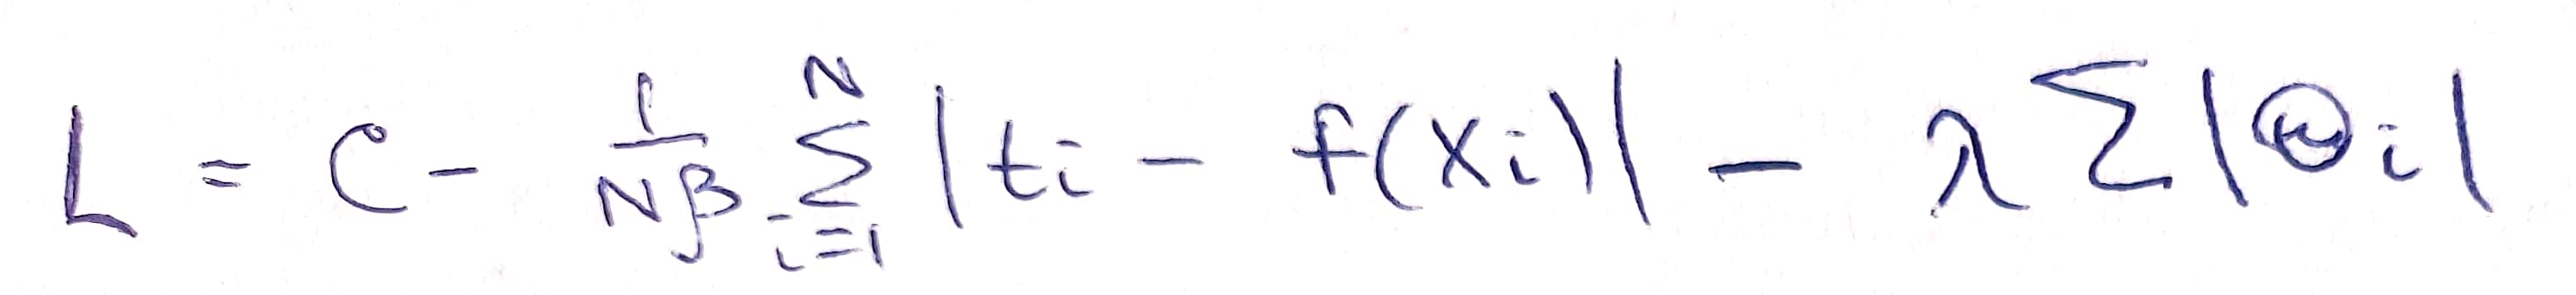 L = C - \frac{1}{N\beta} \sum_{i=1}^{N} |t_i - f(x_i)| - \lambda \sum |\Theta_i|